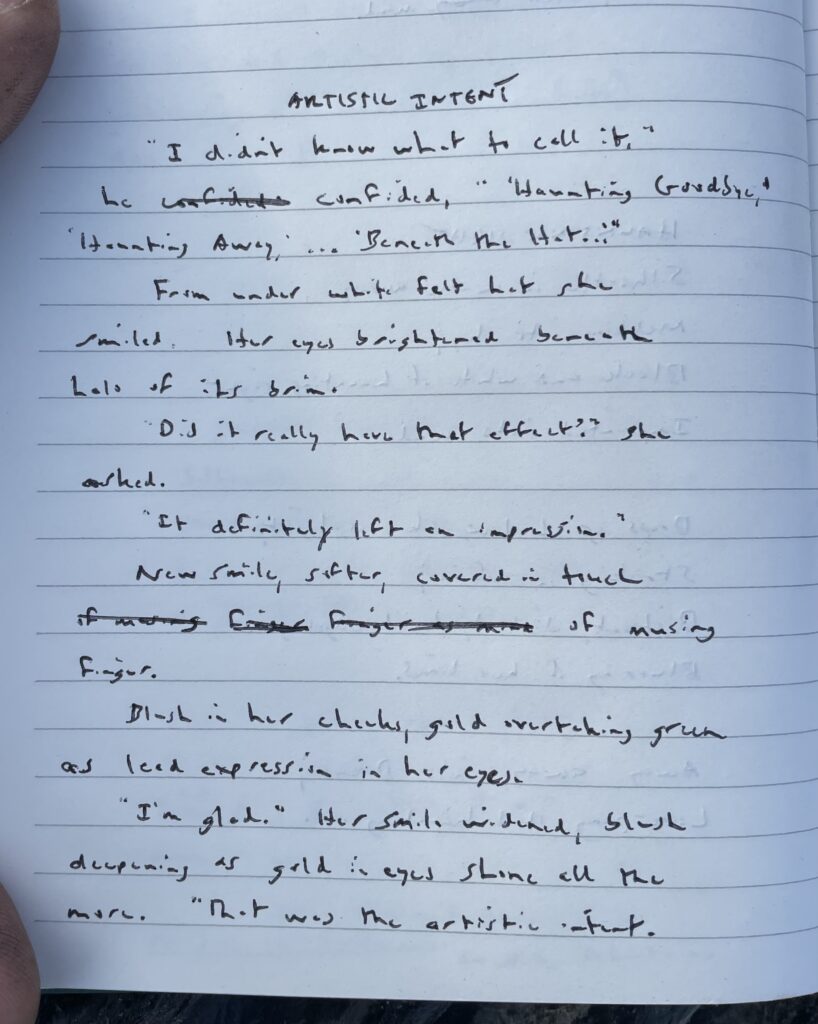 ARTISTIC INTENT
"I didn't know what to call it,"
he confided, "'Haunting Goodbye,'
'Haunting Away,' ... 'Beneath the Hat...'"
From under white felt hat she
smiled. Her eyes brightened beneath
halo of its brim.
"Did it really have that effect?" she
asked.
"It definitely left an impression."
New smile, softer, covered in touch
of musing
finger.
Blush in her cheeks, gold overtaking green
as lead expression in her eyes.
"I'm glad." Her smile widened, blush
deepening as gold in eyes shone all the
more. "That was the artistic intent.